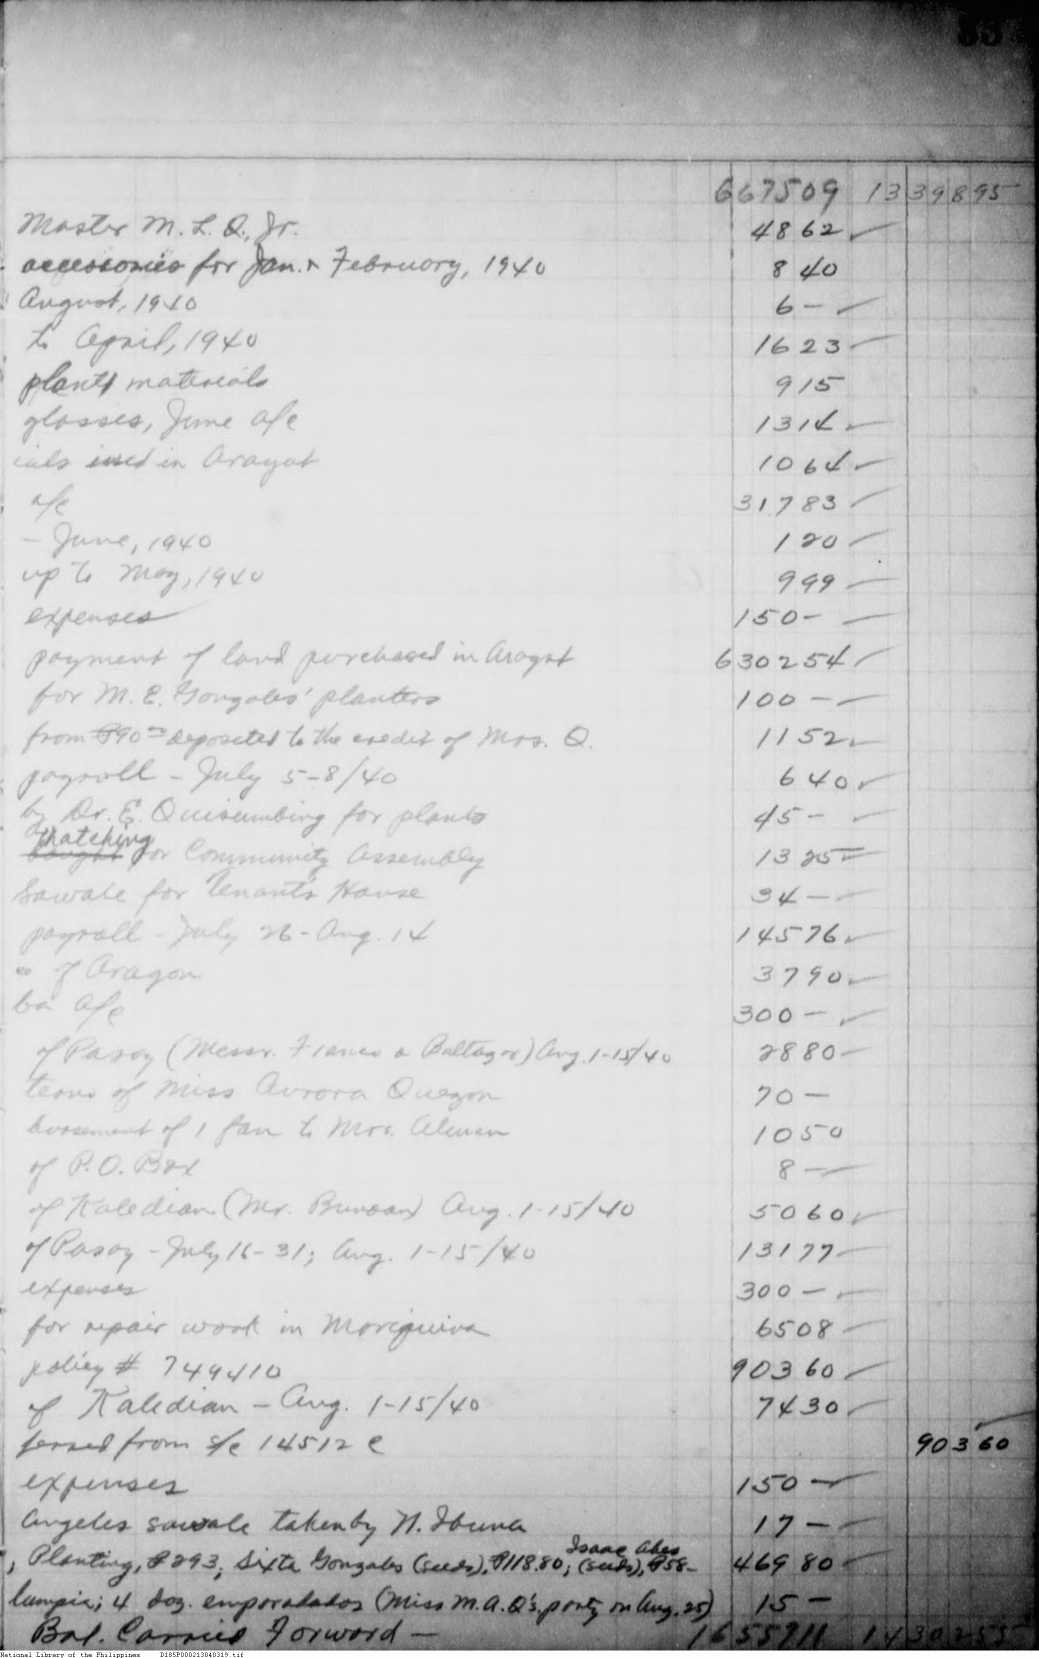 667509 1339895
Master M. L. Q., Jr. 4862
accessories for Jan. & February, 1940 8 40
August, 1940 6 -
to April, 1940 16 23
plants materials 9 15
glasses, June a/c 13 14
ials used in Arayat 10 64
a/c 317 83
- June, 1940 1 20
up to May, 1940 9 99
expenses 150 -
payment of land purchased in Arayat 6302 54
for M. E. Gonzales' planters 100 -
from ₱90 deposited to the credit of Mrs. Q. 11 52
payroll - July 5-8/40 6 40
by Dr. E. Quisumbing for plants 45 -
thatching
bought for Community Assembly 13 25
Sawale for Tenants House 34 -
payroll - July 26 - Aug. 14 145 76
of Aragon 37 90
ba a/c 300 -
of Pasay (Messr. Franco & Baltazar) Aug. 1-15/40 28 80
tions of Miss Aurora Quezon 70 -
bursement of 1 fan to Mrs. 10 50
of P.O. Box 8 -
of Kaledian (Mr. Bunoan) Aug. 1-15/40 50 60
of Pasay - July 16-31; Aug. 1-15/40 131 77
expenses 300 -
for repair work in Mariquina 65 08
policy # 749410 903 60
of Kaledian - Aug. 1-15/40 74 30
ferred from s/c 14512 C 903 60
expenses 150 -
Angeles sawale taken by N. Ibuna 17 -
Isaac Ables
, Planting, ₱293; Sixta Gonzales (seeds), ₱118.80; (seeds), ₱58- 469 80
lumpia; 4 doz. emparadados (Miss M.A.Q's. party on Aug. 25) 15 -
Bal. Carried Forward - 16557 11 14302 55
National Library of the Philippines D185P000213040319.tif